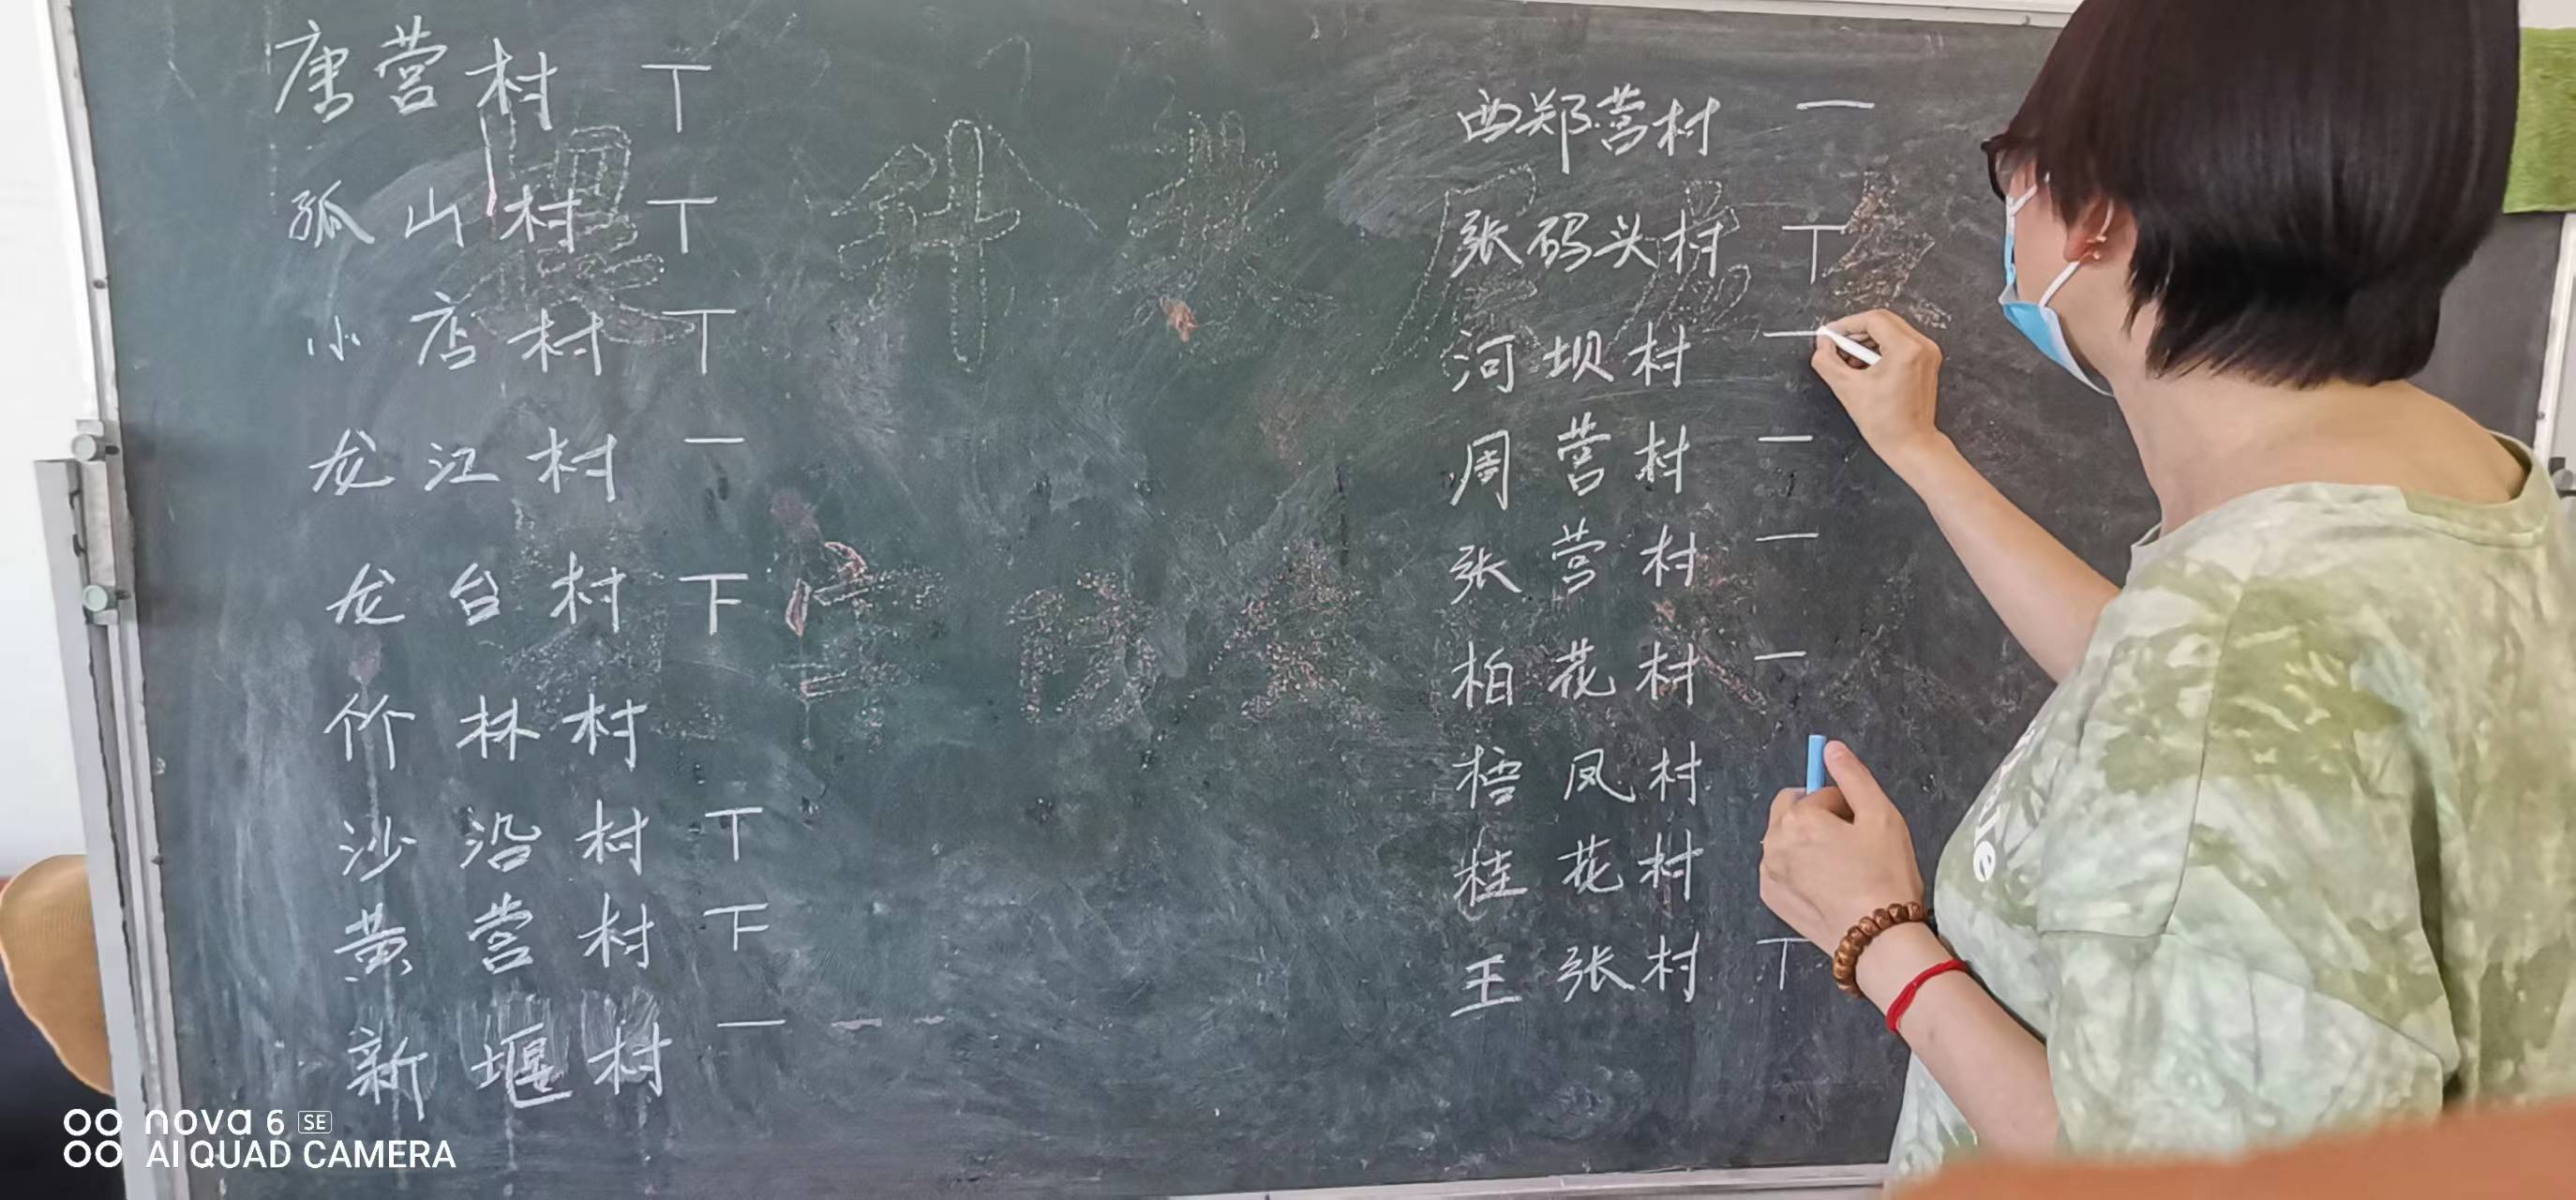 唐营村 丅
孤山村 丅
小店村 丅
龙江村 一
龙台村 下
竹林村
沙沿村 丅
黄营村 下
新堰村 一
西郑营村 一
张码头村 丅
河坝村 一
周营村 一
张营村 一
柏花村 一
梧凤村
桂花村
王张村 丅
nova 6 SE
AI QUAD CAMERA